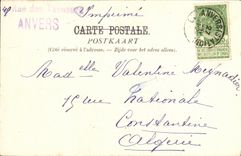 Imprimé
49 Rue des Tanneurs
ANVERS
CARTE POSTALE
POSTKAART
(Côté réservé à l'adresse) - Zijde voor het adres alleen.
Mademoiselle Valentine
15 rue Nationale
Constantine
Algérie